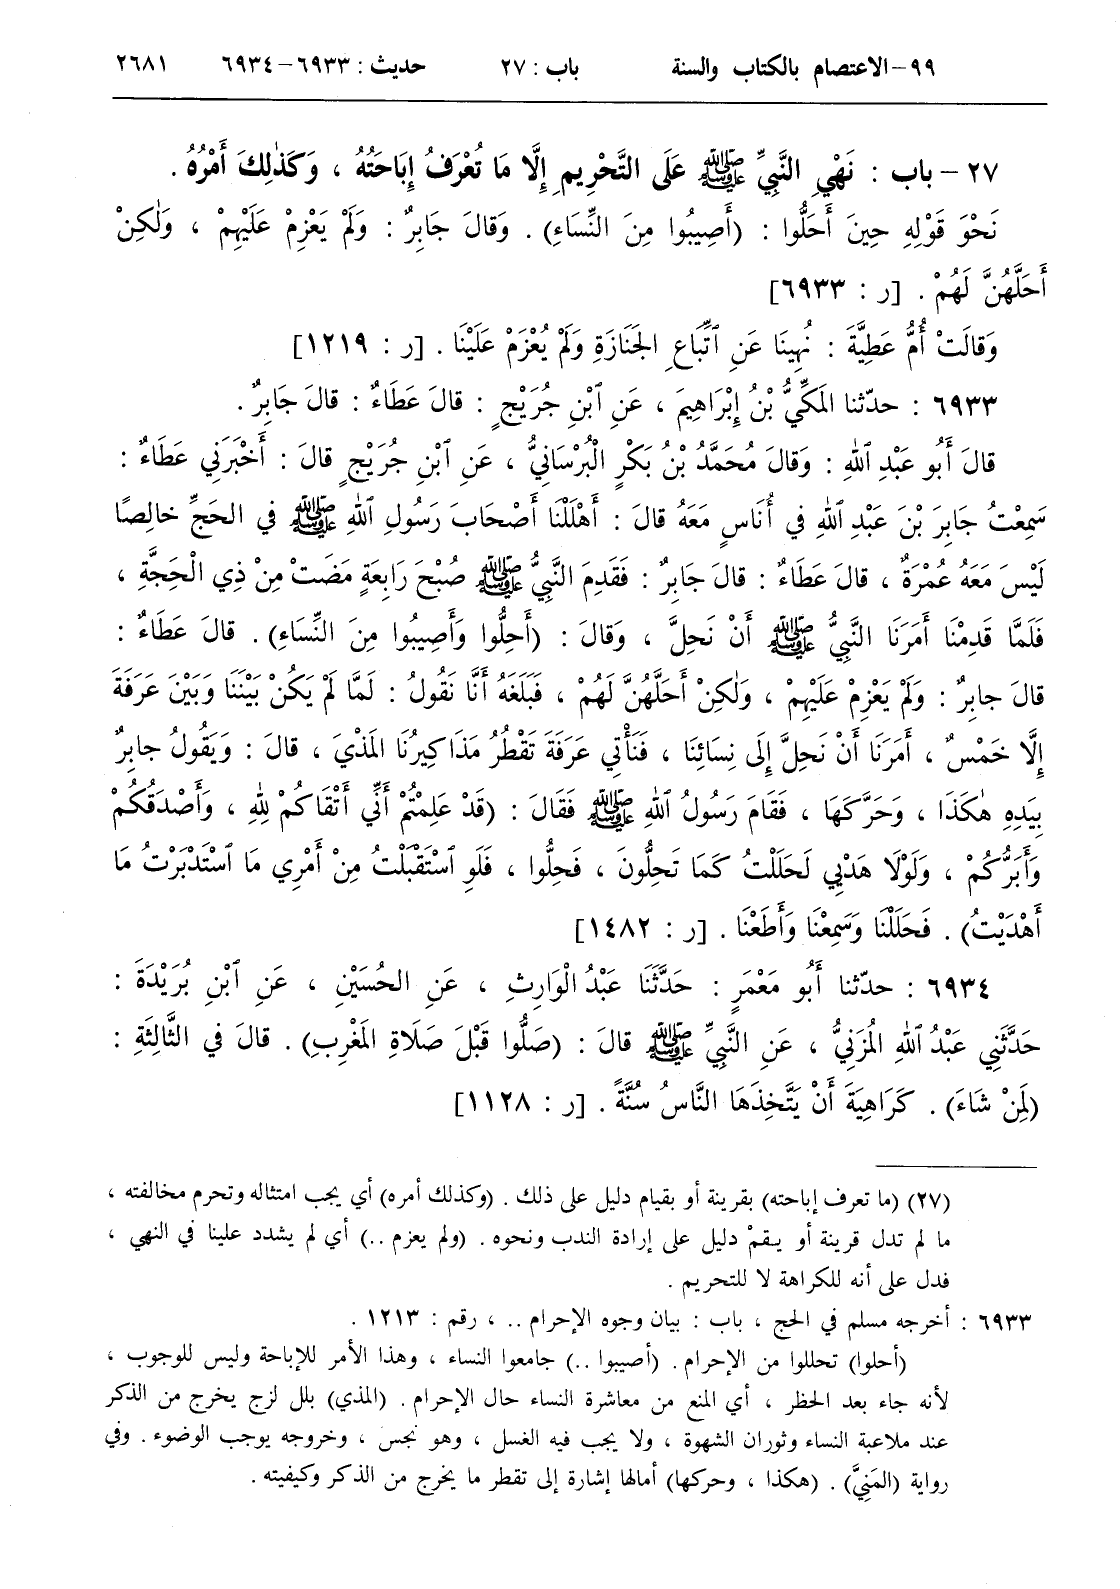 ٩٩-الاعتصام بالكتاب والسنة باب : ٢٧ حديث : ٦٩٣٣-٦٩٣٤ ٢٦٨١
٢٧ - باب : نَهْيِ النَّبِيِّ ﷺ عَلَى التَّحْرِيمِ إِلَّا مَا تُعْرَفُ إِبَاحَتُهُ ، وَكَذٰلِكَ أَمْرُهُ .
نَحْوَ قَوْلِهِ حِينَ أَحَلُّوا : (أَصِيبُوا مِنَ النِّسَاءِ) . وَقَالَ جَابِرٌ : وَلَمْ يَعْزِمْ عَلَيْهِمْ ، وَلٰكِنْ
أَحَلَّهُنَّ لَهُمْ . [ر : ٦٩٣٣]
وَقَالَتْ أُمُّ عَطِيَّةَ : نُهِينَا عَنِ ٱتِّبَاعِ الجَنَازَةِ وَلَمْ يُعْزَمْ عَلَيْنَا . [ر : ١٢١٩]
٦٩٣٣ : حدّثنا المَكِّيُّ بْنُ إِبْرَاهِيمَ ، عَنِ ٱبْنِ جُرَيْجٍ : قالَ عَطَاءٌ : قالَ جَابِرٌ .
قالَ أَبُو عَبْدِ ٱللهِ : وَقالَ مُحَمَّدُ بْنُ بَكْرٍ الْبُرْسَانِيُّ ، عَنِ ٱبْنِ جُرَيْجٍ قالَ : أَخْبَرَنِي عَطَاءٌ :
سَمِعْتُ جَابِرَ بْنَ عَبْدِ ٱللهِ فِي أُنَاسٍ مَعَهُ قالَ : أَهْلَلْنَا أَصْحَابَ رَسُولِ ٱللهِ ﷺ فِي الحَجِّ خالِصًا
لَيْسَ مَعَهُ عُمْرَةٌ ، قالَ عَطَاءٌ : قالَ جَابِرٌ : فَقَدِمَ النَّبِيُّ ﷺ صُبْحَ رَابِعَةٍ مَضَتْ مِنْ ذِي الْحِجَّةِ ،
فَلَمَّا قَدِمْنَا أَمَرَنَا النَّبِيُّ ﷺ أَنْ نَحِلَّ ، وَقالَ : (أَحِلُّوا وَأَصِيبُوا مِنَ النِّسَاءِ) . قالَ عَطَاءٌ :
قالَ جابِرٌ : وَلَمْ يَعْزِمْ عَلَيْهِمْ ، وَلٰكِنْ أَحَلَّهُنَّ لَهُمْ ، فَبَلَغَهُ أَنَّا نَقُولُ : لَمَّا لَمْ يَكُنْ بَيْنَنَا وَبَيْنَ عَرَفَةَ
إِلَّا خَمْسٌ ، أَمَرَنَا أَنْ نَحِلَّ إِلَى نِسَائِنَا ، فَنَأْتِي عَرَفَةَ تَقْطُرُ مَذَاكِيرُنَا المَذْيَ ، قالَ : وَيَقُولُ جابِرٌ
بِيَدِهِ هٰكَذَا ، وَحَرَّكَهَا ، فَقَامَ رَسُولُ ٱللهِ ﷺ فَقَالَ : (قَدْ عَلِمْتُمْ أَنِّي أَتْقَاكُمْ لِلهِ ، وَأَصْدَقُكُمْ
وَأَبَرُّكُمْ ، وَلَوْلَا هَدْيِي لَحَلَلْتُ كَمَا تَحِلُّونَ ، فَحِلُّوا ، فَلَوِ ٱسْتَقْبَلْتُ مِنْ أَمْرِي مَا ٱسْتَدْبَرْتُ مَا
أَهْدَيْتُ) . فَحَلَلْنَا وَسَمِعْنَا وَأَطَعْنَا . [ر : ١٤٨٢]
٦٩٣٤ : حدّثنا أَبُو مَعْمَرٍ : حَدَّثَنَا عَبْدُ الْوَارِثِ ، عَنِ الحُسَيْنِ ، عَنِ ٱبْنِ بُرَيْدَةَ :
حَدَّثَنِي عَبْدُ ٱللهِ المُزَنِيُّ ، عَنِ النَّبِيِّ ﷺ قالَ : (صَلُّوا قَبْلَ صَلَاةِ المَغْرِبِ) . قالَ فِي الثَّالِثَةِ :
(لِمَنْ شَاءَ) . كَرَاهِيَةَ أَنْ يَتَّخِذَهَا النَّاسُ سُنَّةً . [ر : ١١٢٨]
(٢٧) (ما تعرف إباحته) بقرينة أو بقيام دليل على ذلك . (وكذلك أمره) أي يجب امتثاله وتحرم مخالفته ،
ما لم تدل قرينة أو يـقمْ دليل على إرادة الندب ونحوه . (ولم يعزم ..) أي لم يشدد علينا في النهي ،
فدل على أنه للكراهة لا للتحريم .
٦٩٣٣ : أخرجه مسلم في الحج ، باب : بيان وجوه الإحرام .. ، رقم : ١٢١٣ .
(أحلوا) تحللوا من الإحرام . (أصيبوا ..) جامعوا النساء ، وهذا الأمر للإباحة وليس للوجوب ،
لأنه جاء بعد الحظر ، أي المنع من معاشرة النساء حال الإحرام . (المذي) بلل لزج يخرج من الذكر
عند ملاعبة النساء وثوران الشهوة ، ولا يجب فيه الغسل ، وهو نجس ، وخروجه يوجب الوضوء . وفي
رواية (المَنِيَّ) . (هكذا ، وحركها) أمالها إشارة إلى تقطر ما يخرج من الذكر وكيفيته .